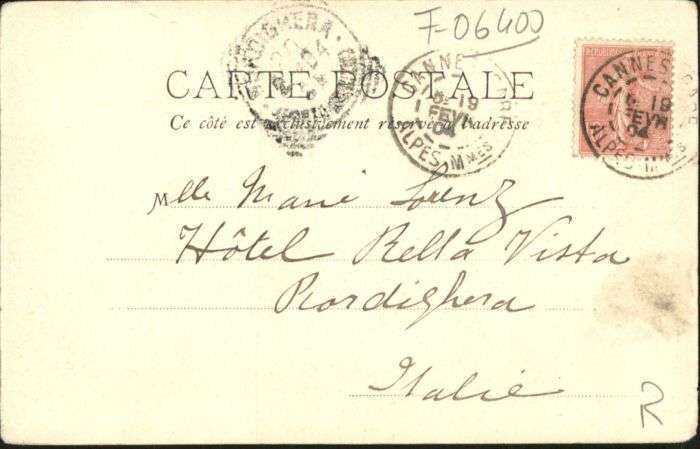 F-06400
BORDIGHERA
CANNES GARE
6 · 19
1 FEVR
04
ALPES MMES
CANNES GARE
6 · 19
1 FEVR
04
ALPES MMES
CARTE POSTALE
Ce côté est exclusivement réservé à l'adresse
Melle Marie Lorenz
Hôtel Bella Vista
Bordighera
Italie
R